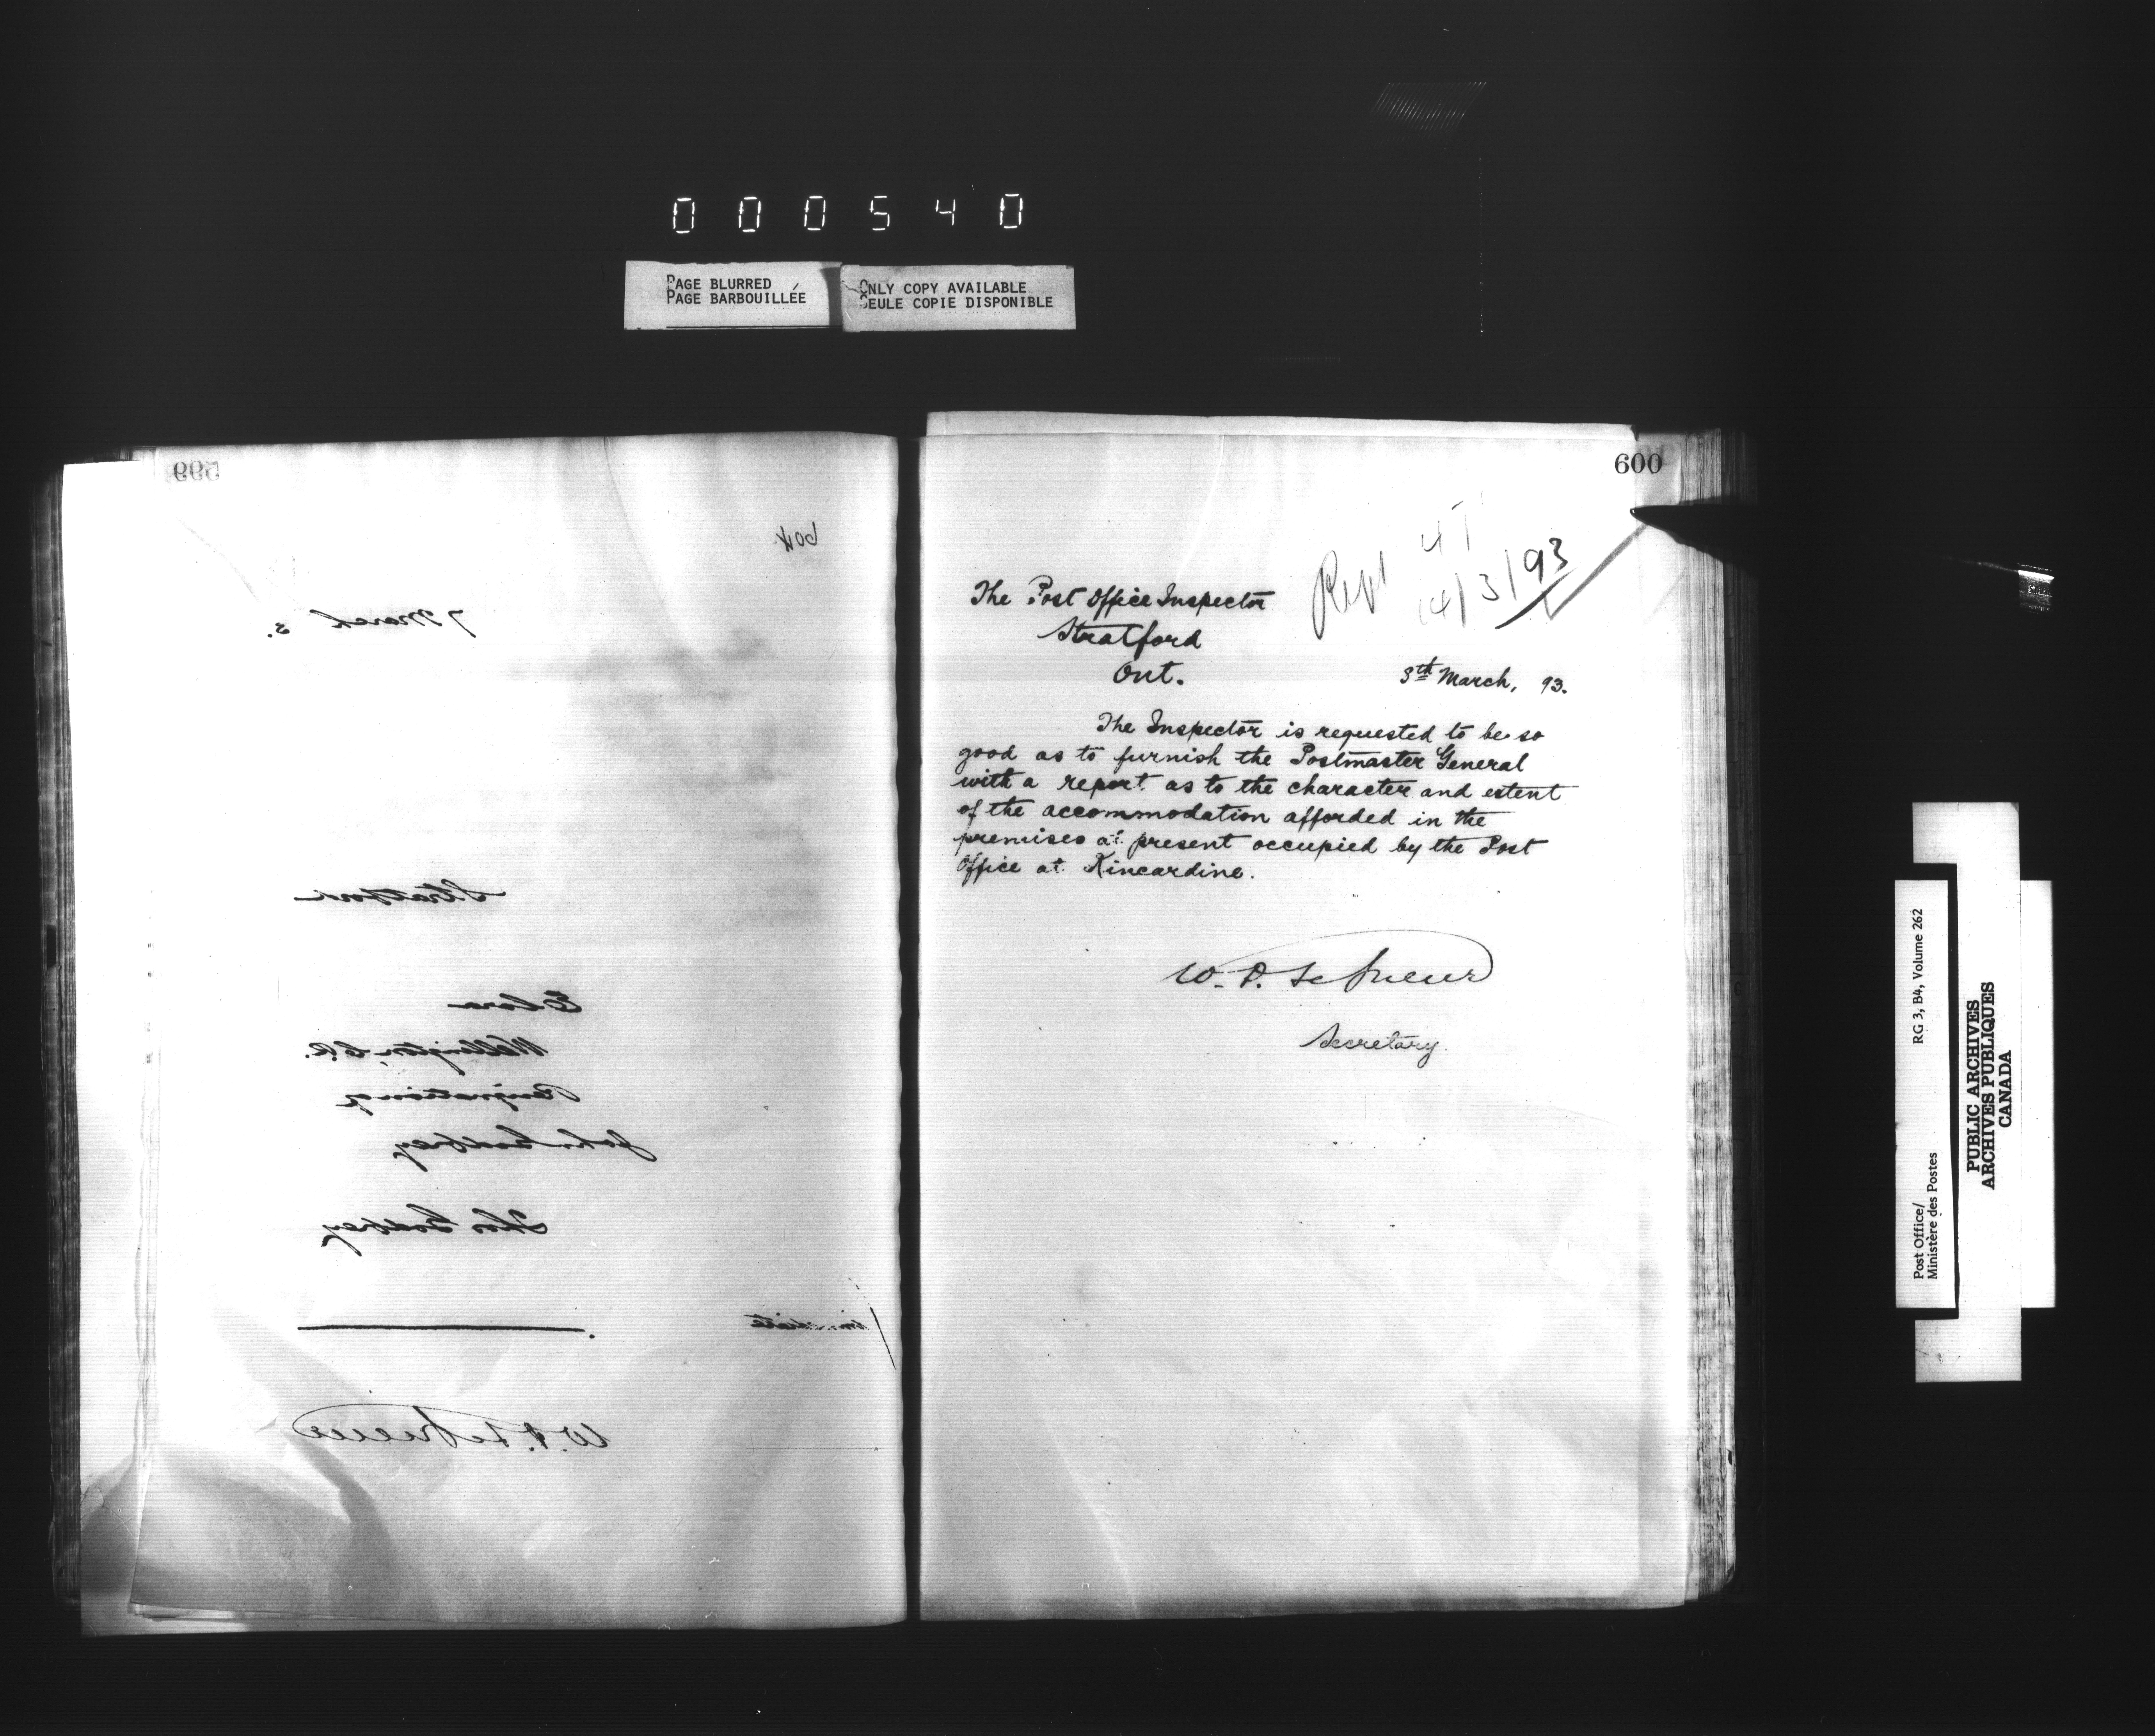 000540
PAGE BLURRED
PAGE BARBOUILLÉE
ONLY COPY AVAILABLE
SEULE COPIE DISPONIBLE
599
604
7 March 3.
Stratford
Elora
Wellington, C.R.
Resignation of
John Godfrey
Thos Godfrey
W. D. LeSueur
600
14/3/93
The Post Office Inspector
Stratford
Ont.
3th March, 93.
The Inspector is requested to be so
good as to furnish the Postmaster General
with a report as to the character and extent
of the accommodation afforded in the
premises at present occupied by the Post
Office at Kincardine.
W. D. LeSueur
Secretary.
Post Office/
Ministère des Postes
RG 3, B4, Volume 262
PUBLIC ARCHIVES
ARCHIVES PUBLIQUES
CANADA